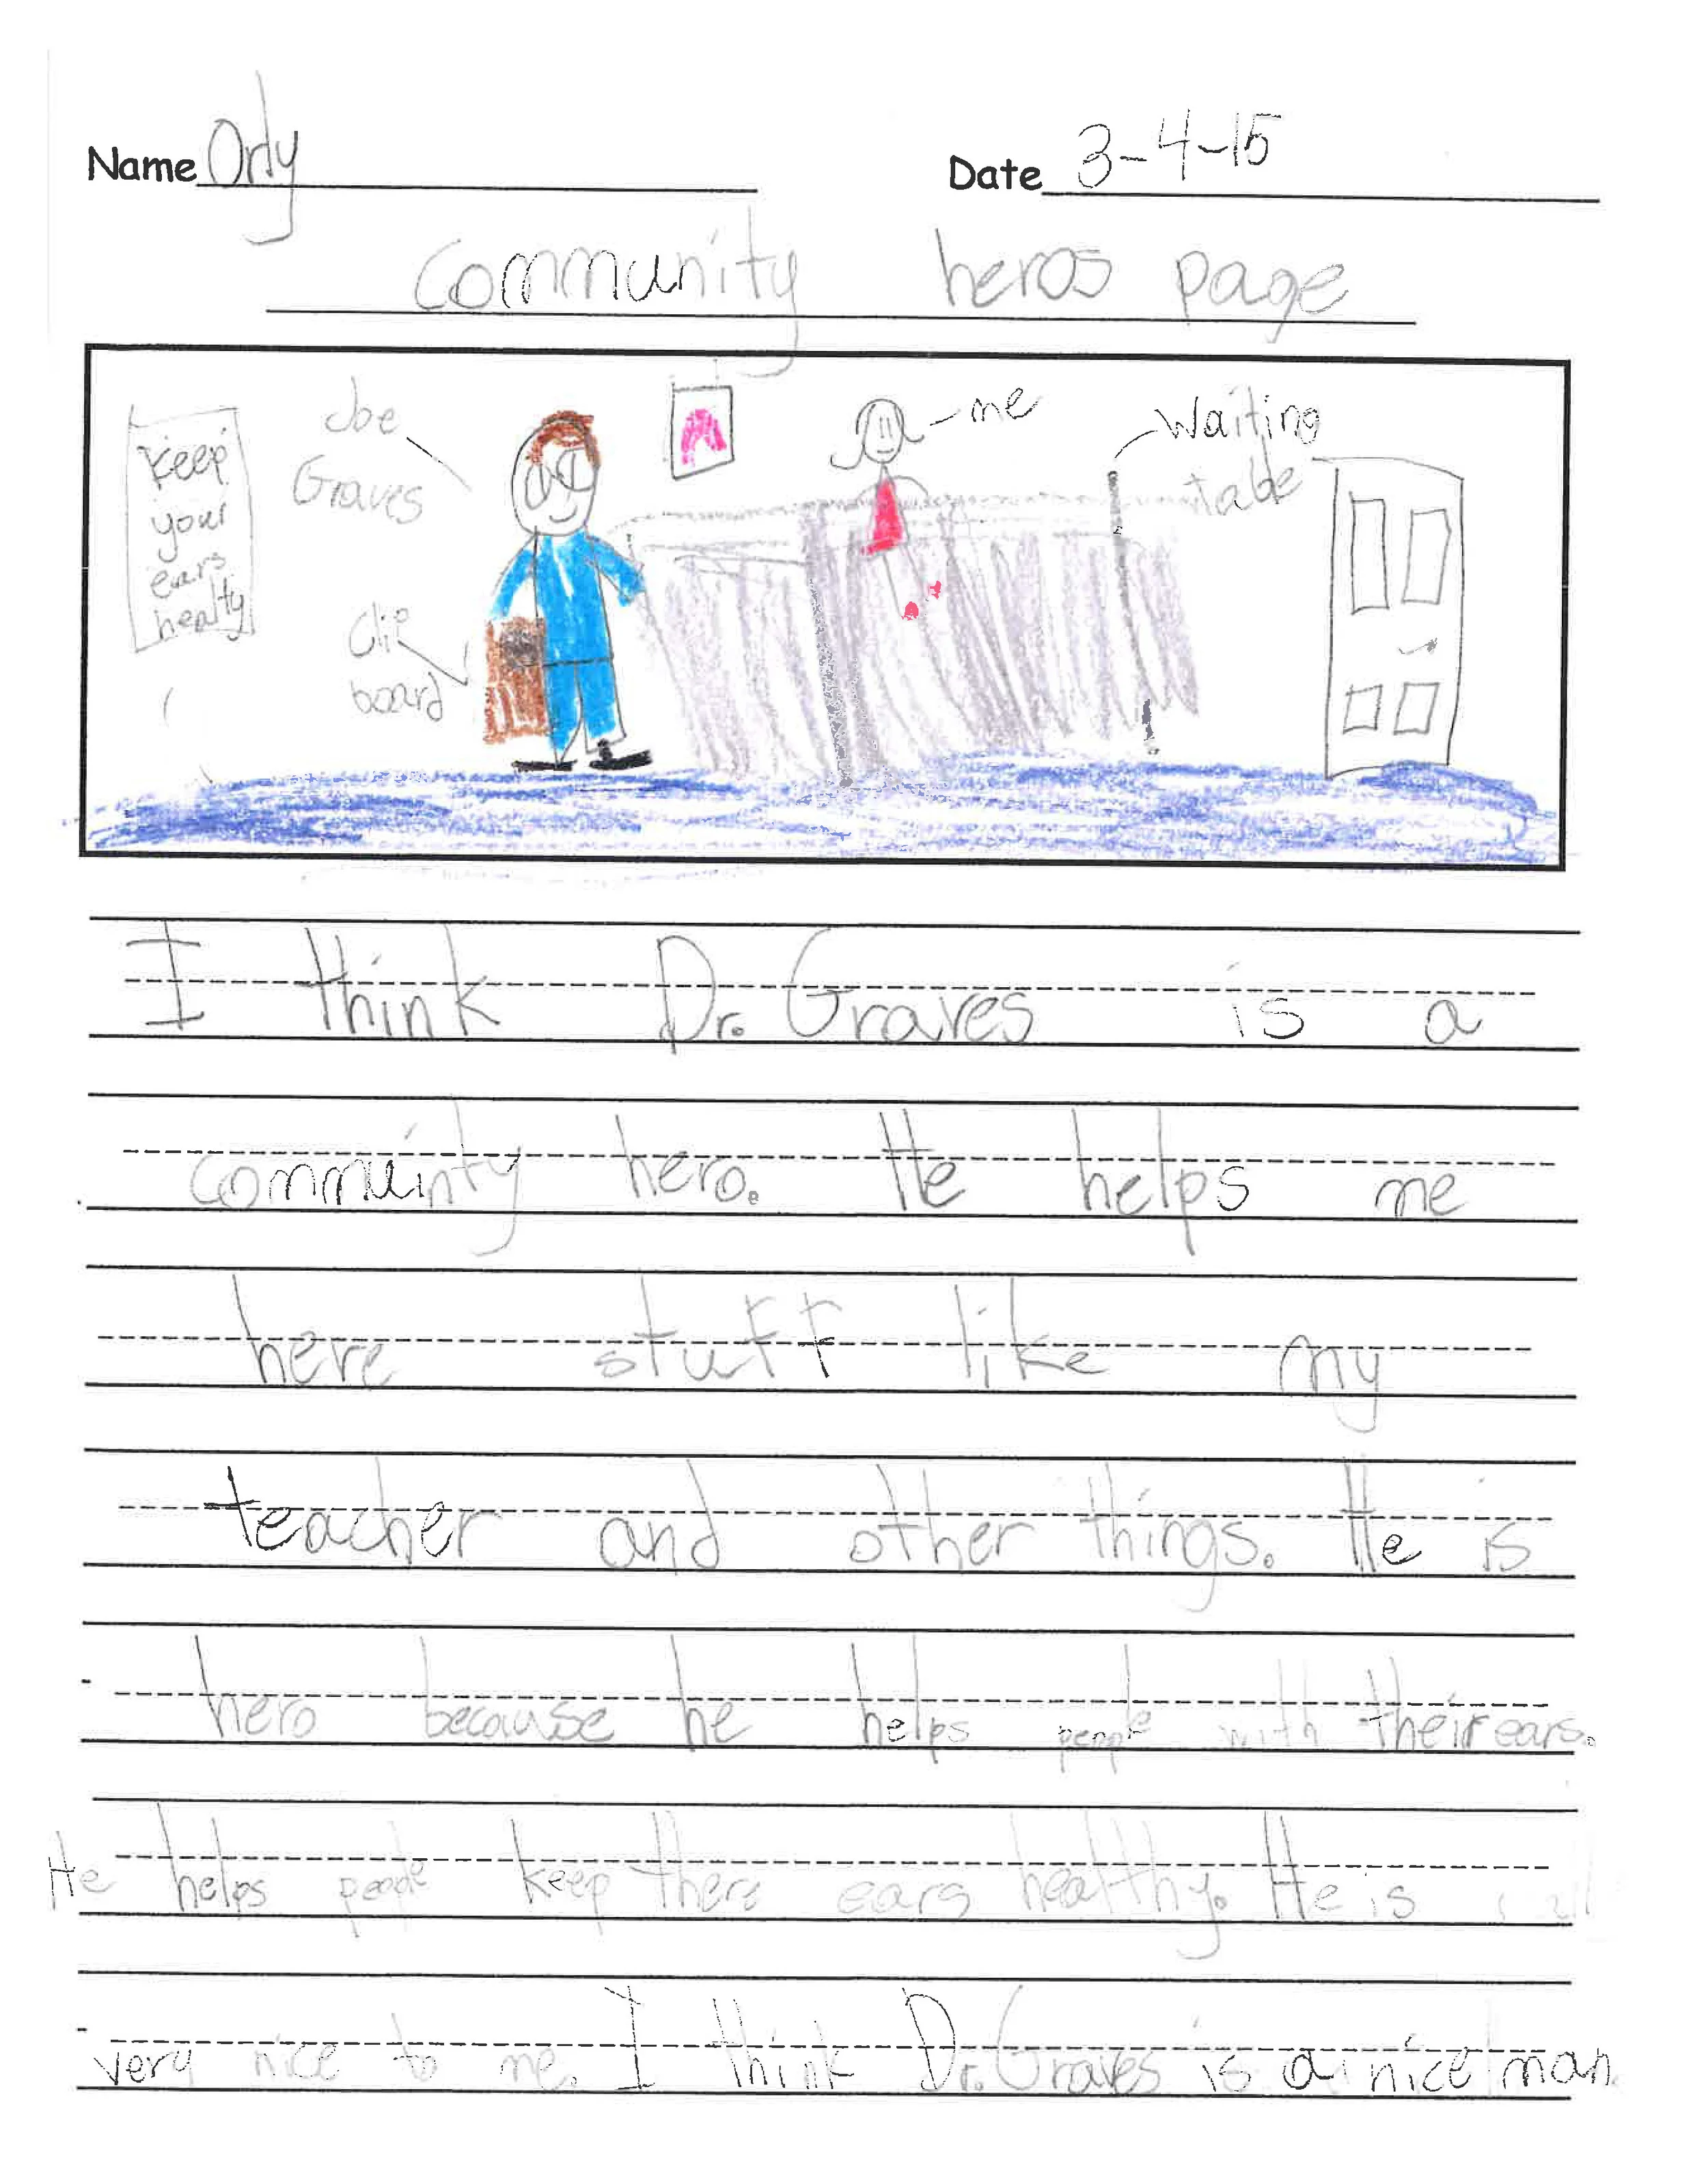 Name Orly
Date 3-4-15
community heros page
keep
your
ears
healty
Joe
Graves
Clip
board
me
Waiting
table
I think Dr. Graves is a
commuinty hero. He helps me
here stuff like my
teacher and other things. He is
hero because he helps people with their ears.
He helps people keep there ears healthy. He is
very nice to me. I think Dr. Graves is a nice man.